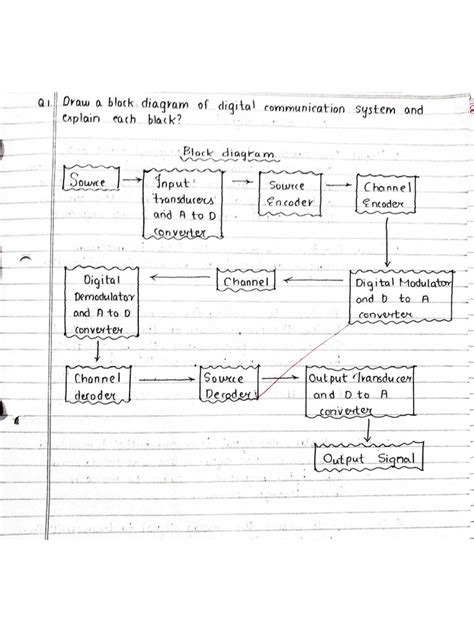 Q1. Draw a block diagram of digital communication system and
explain each block?
Block diagram
Source
Input
transducers
and A to D
converter
Source
Encoder
Channel
Encoder
Digital
Demodulator
and A to D
converter
Channel
Digital Modulator
and D to A
converter
Channel
decoder
Source
Decoder
Output Transducer
and D to A
converter
Output Signal